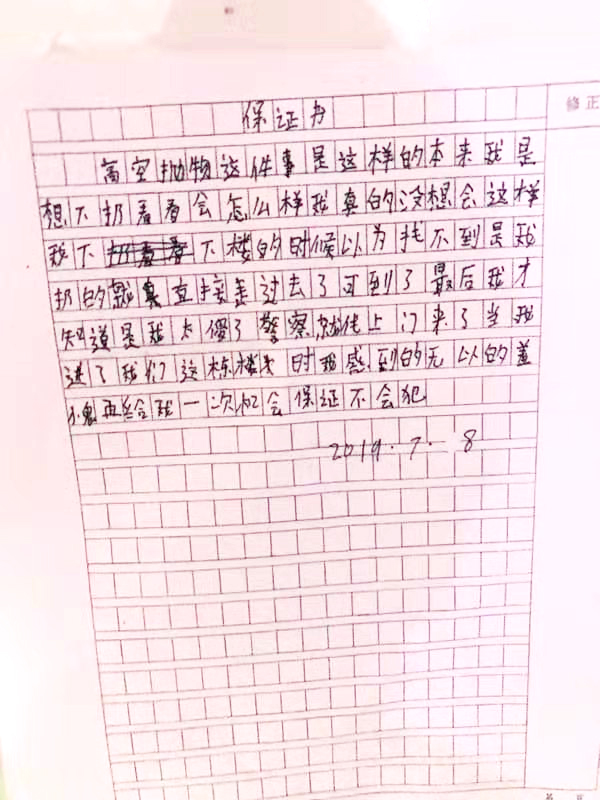 修正
保证书
高空抛物这件事是这样的本来我是
想下扔看看会怎么样我真的没想会这样
我下扔看看下楼的时候以为找不到是我
扔的就真直接走过去了可到了最后我才
知道是我太傻了警察就住上门来了当我
进了我们这栋楼 时我感到的无以的羞
愧再给我一次机会保证不会犯
2019.7.8